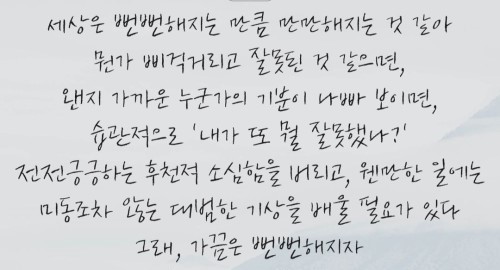 세상은 뻔뻔해지는 만큼 만만해지는 것 같아
뭔가 삐걱거리고 잘못된 것 같으면,
왠지 가까운 누군가의 기분이 나빠 보이면,
습관적으로 '내가 또 뭘 잘못했나?'
전전긍긍하는 후천적 소심함을 버리고, 웬만한 일에는
미동조차 않는 대범한 기상을 배울 필요가 있다
그래, 가끔은 뻔뻔해지자